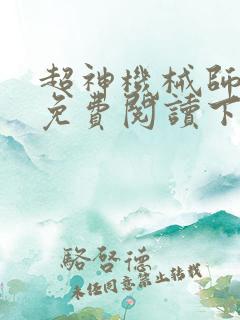 超神機械師
免費閱讀下
駱啓德
未经同意禁止转载